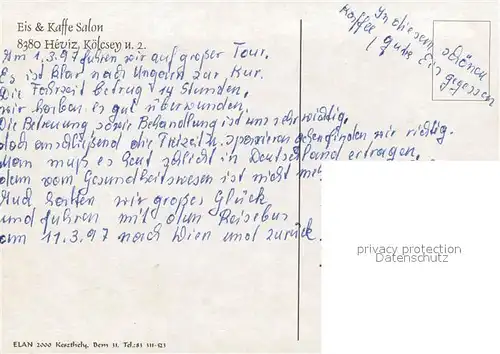 Eis & Kaffe Salon
8380 Hévíz, Kölcsey u. 2.
In diesem schönen
Kaffee gutes Eis gegessen
Am 1.3.97 fuhren wir auf großer Tour.
Es ist klar nach Ungarn zur Kur.
Die Fahrzeit betrug 14 Stunden,
wir haben es gut überwunden.
Die Betreuung sowie Behandlung ist uns sehr wichtig,
doch anschließend die Freizeit u. spazieren gehen finden wir richtig.
Man muß es heut zu in Deutschland ertragen,
denn vom Gesundheitswesen ist nicht
Auch hatten wir großes Glück
und fuhren mit dem Reisebus
am 11.3.97 nach Wien und zurück.
privacy protection
Datenschutz
ELAN 2000 Keszthely, Bem u. Tel.:83 311-523